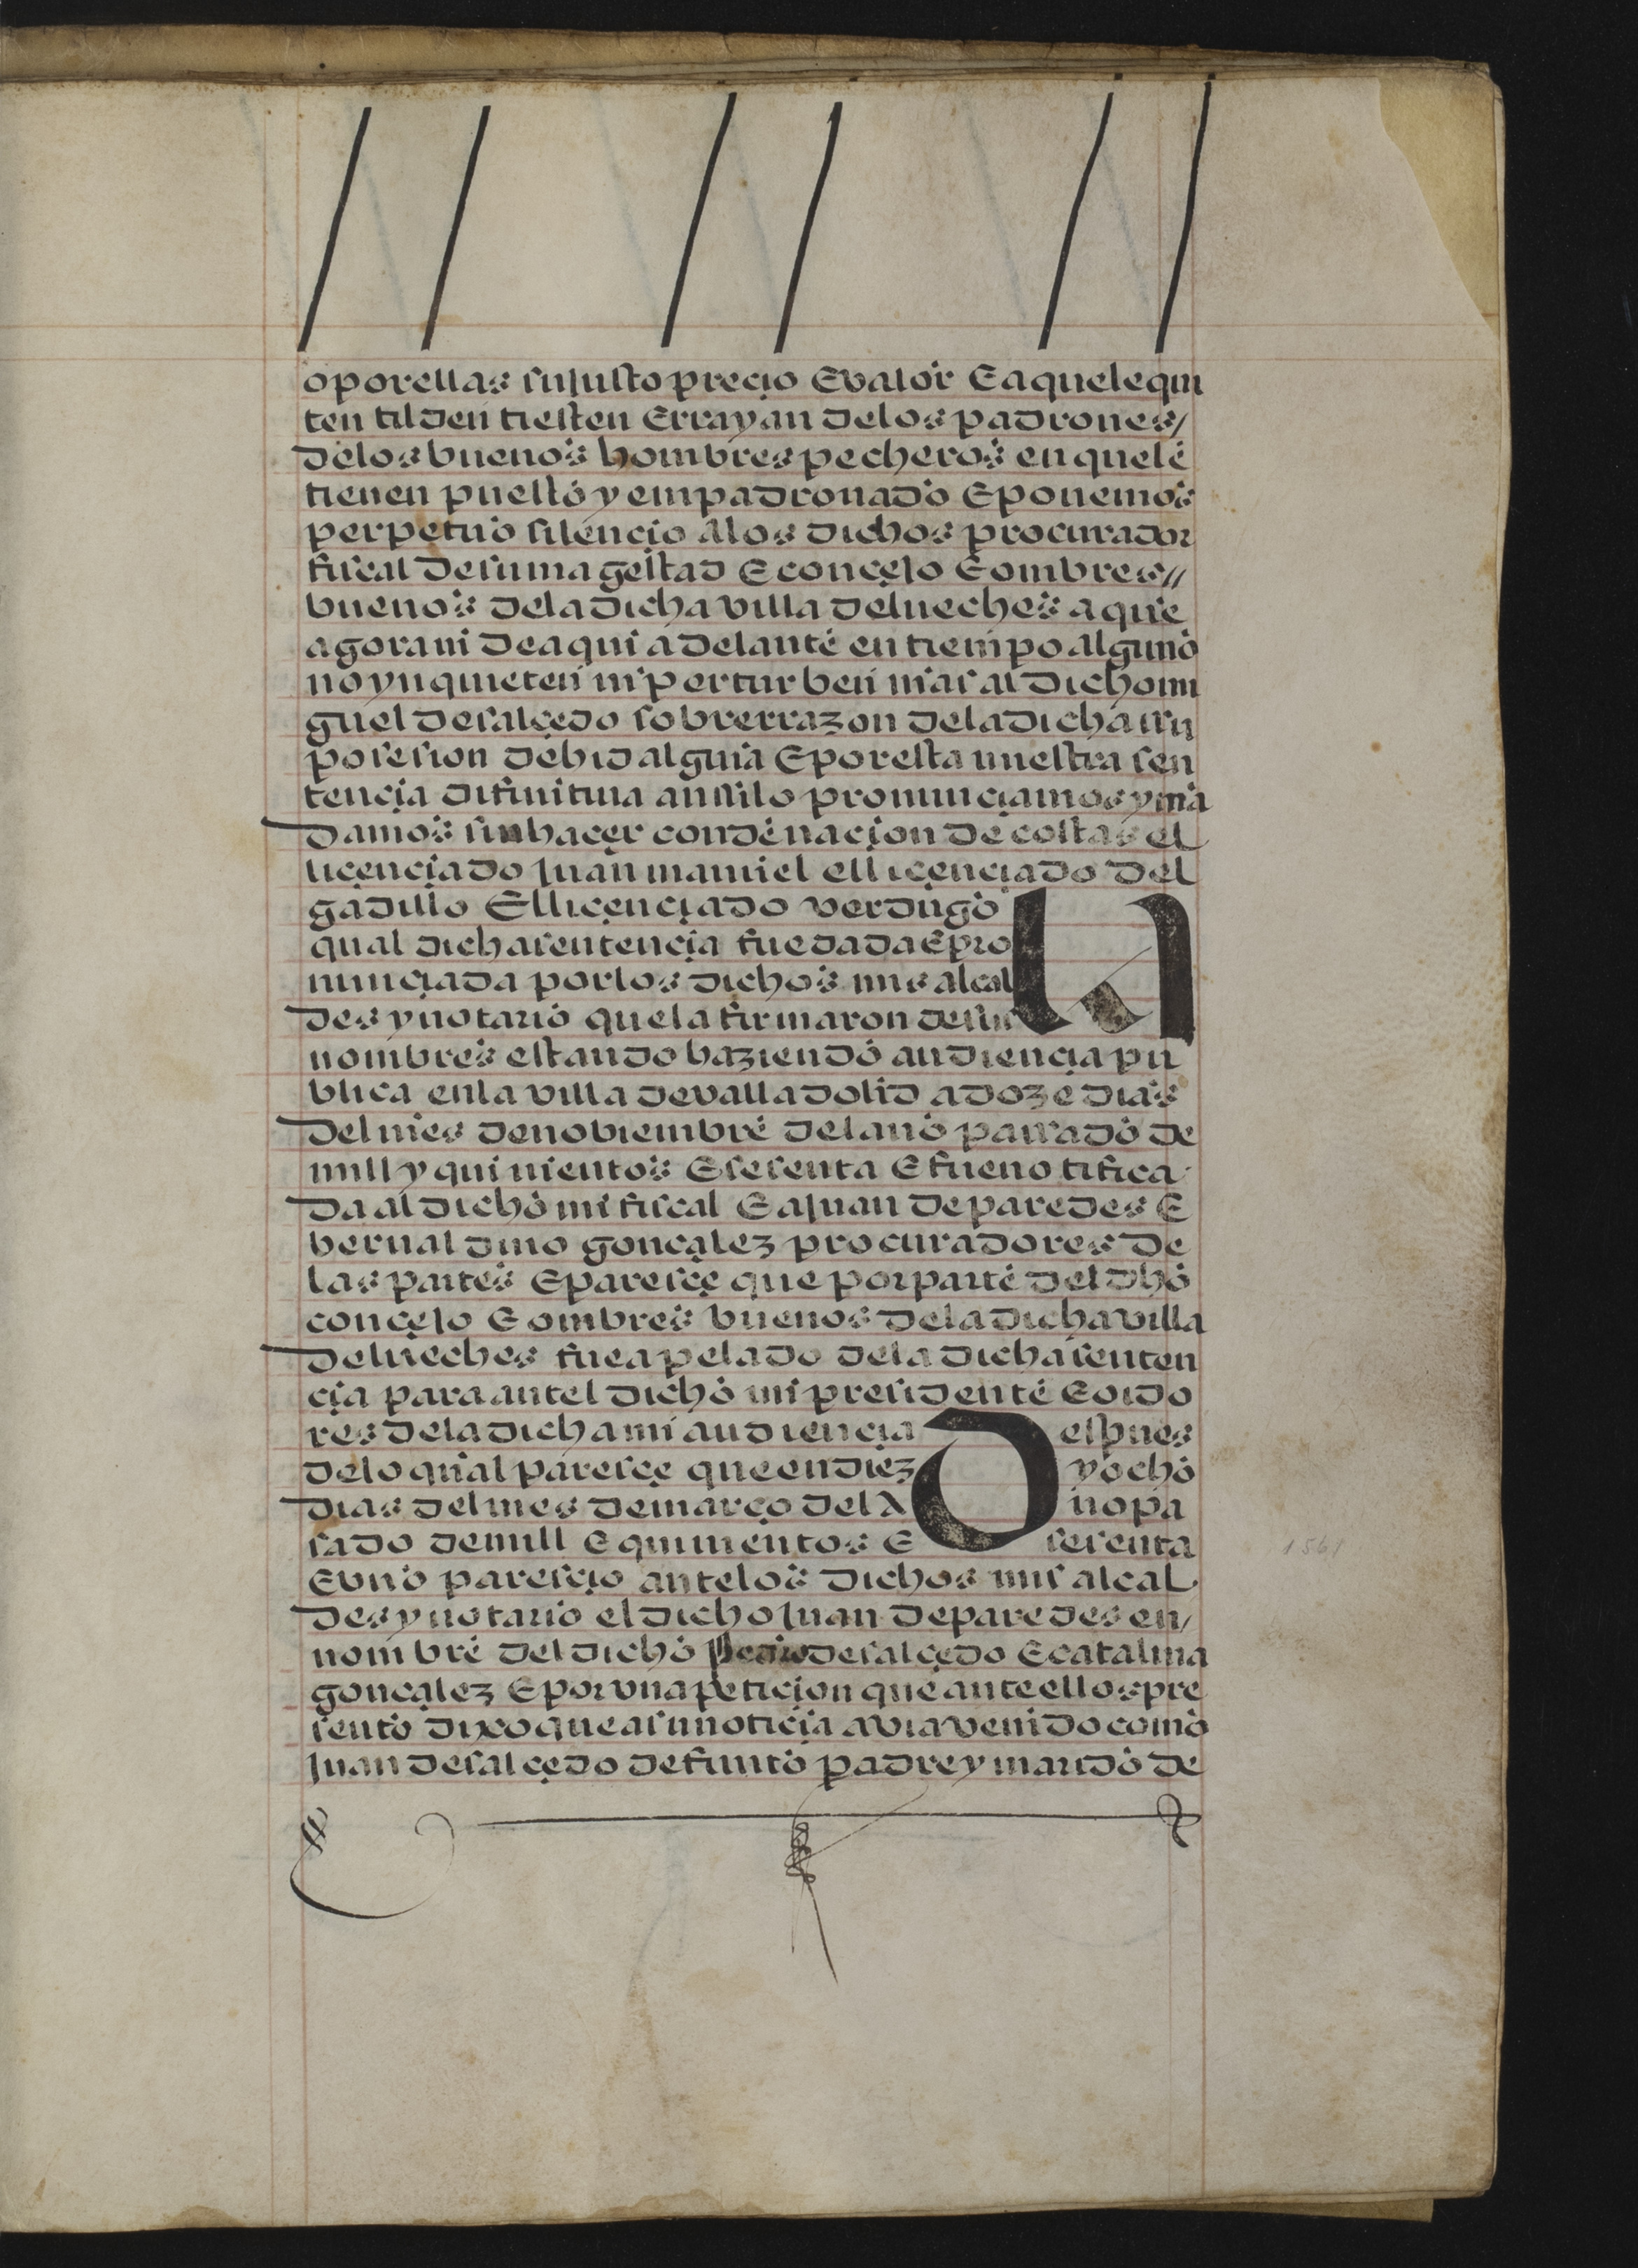 o por ellas su justo precio E valor E a quele qui
ten tilden tiesten E rrayan de los padrones/
de los buenos hombres pecheros en que le
tienen puesto y empadronado E ponemos
perpetuo silencio A los dichos procurador
fiscal de su magestad E conçejo E ombres//
buenos de la dicha villa de lueches a que
agora ni de aqui adelante en tiempo Alguno
no ynquieten ni perturben mas al dicho mi
guel de salçedo sobre rrazon de la dicha su
posesion de hidalguia E por esta nuestra sen
tençia difinitiua ansi lo pronunçiamos y mã
damos sin haçer condenaçion de costas el
liçençiado Juan manuel el liçençiado del
gadillo El liçençiado verdugo LA
qual dicha sentençia fue dada E pro
nunçiada por los dichos mis alcal
des y notario que la firmaron de sus
nombres estando haziendo audiençia pu
blica en la villa de valladolid a doze dias
del mes de nobiembre del año passado de
mill y quinientos E sesenta E fue notifica
da al dicho mi fiscal E a Juan de paredes E
bernaldino gonçalez procuradores de
las partes E paresçe que por parte del dho
conçejo E ombres buenos de la dicha villa
de lueches fue apelado de la dicha senten
çia para antel dicho mi presidente E oido
res de la dicha mi audiençia Despues
de lo qual paresçe que en diez y ocho
dias del mes de março del Año pa
sado de mill E quinientos E sesenta
E vno paresçio ante los dichos mis alcal
des y notario el dicho Juan de paredes en/
nombre del dicho Pedro de salçedo E catalina
gonçalez E por vna petiçion que ante ellos pre
sento dixo que a su notiçia avia venido como
Juan de salçedo defunto padre y marido de
1561